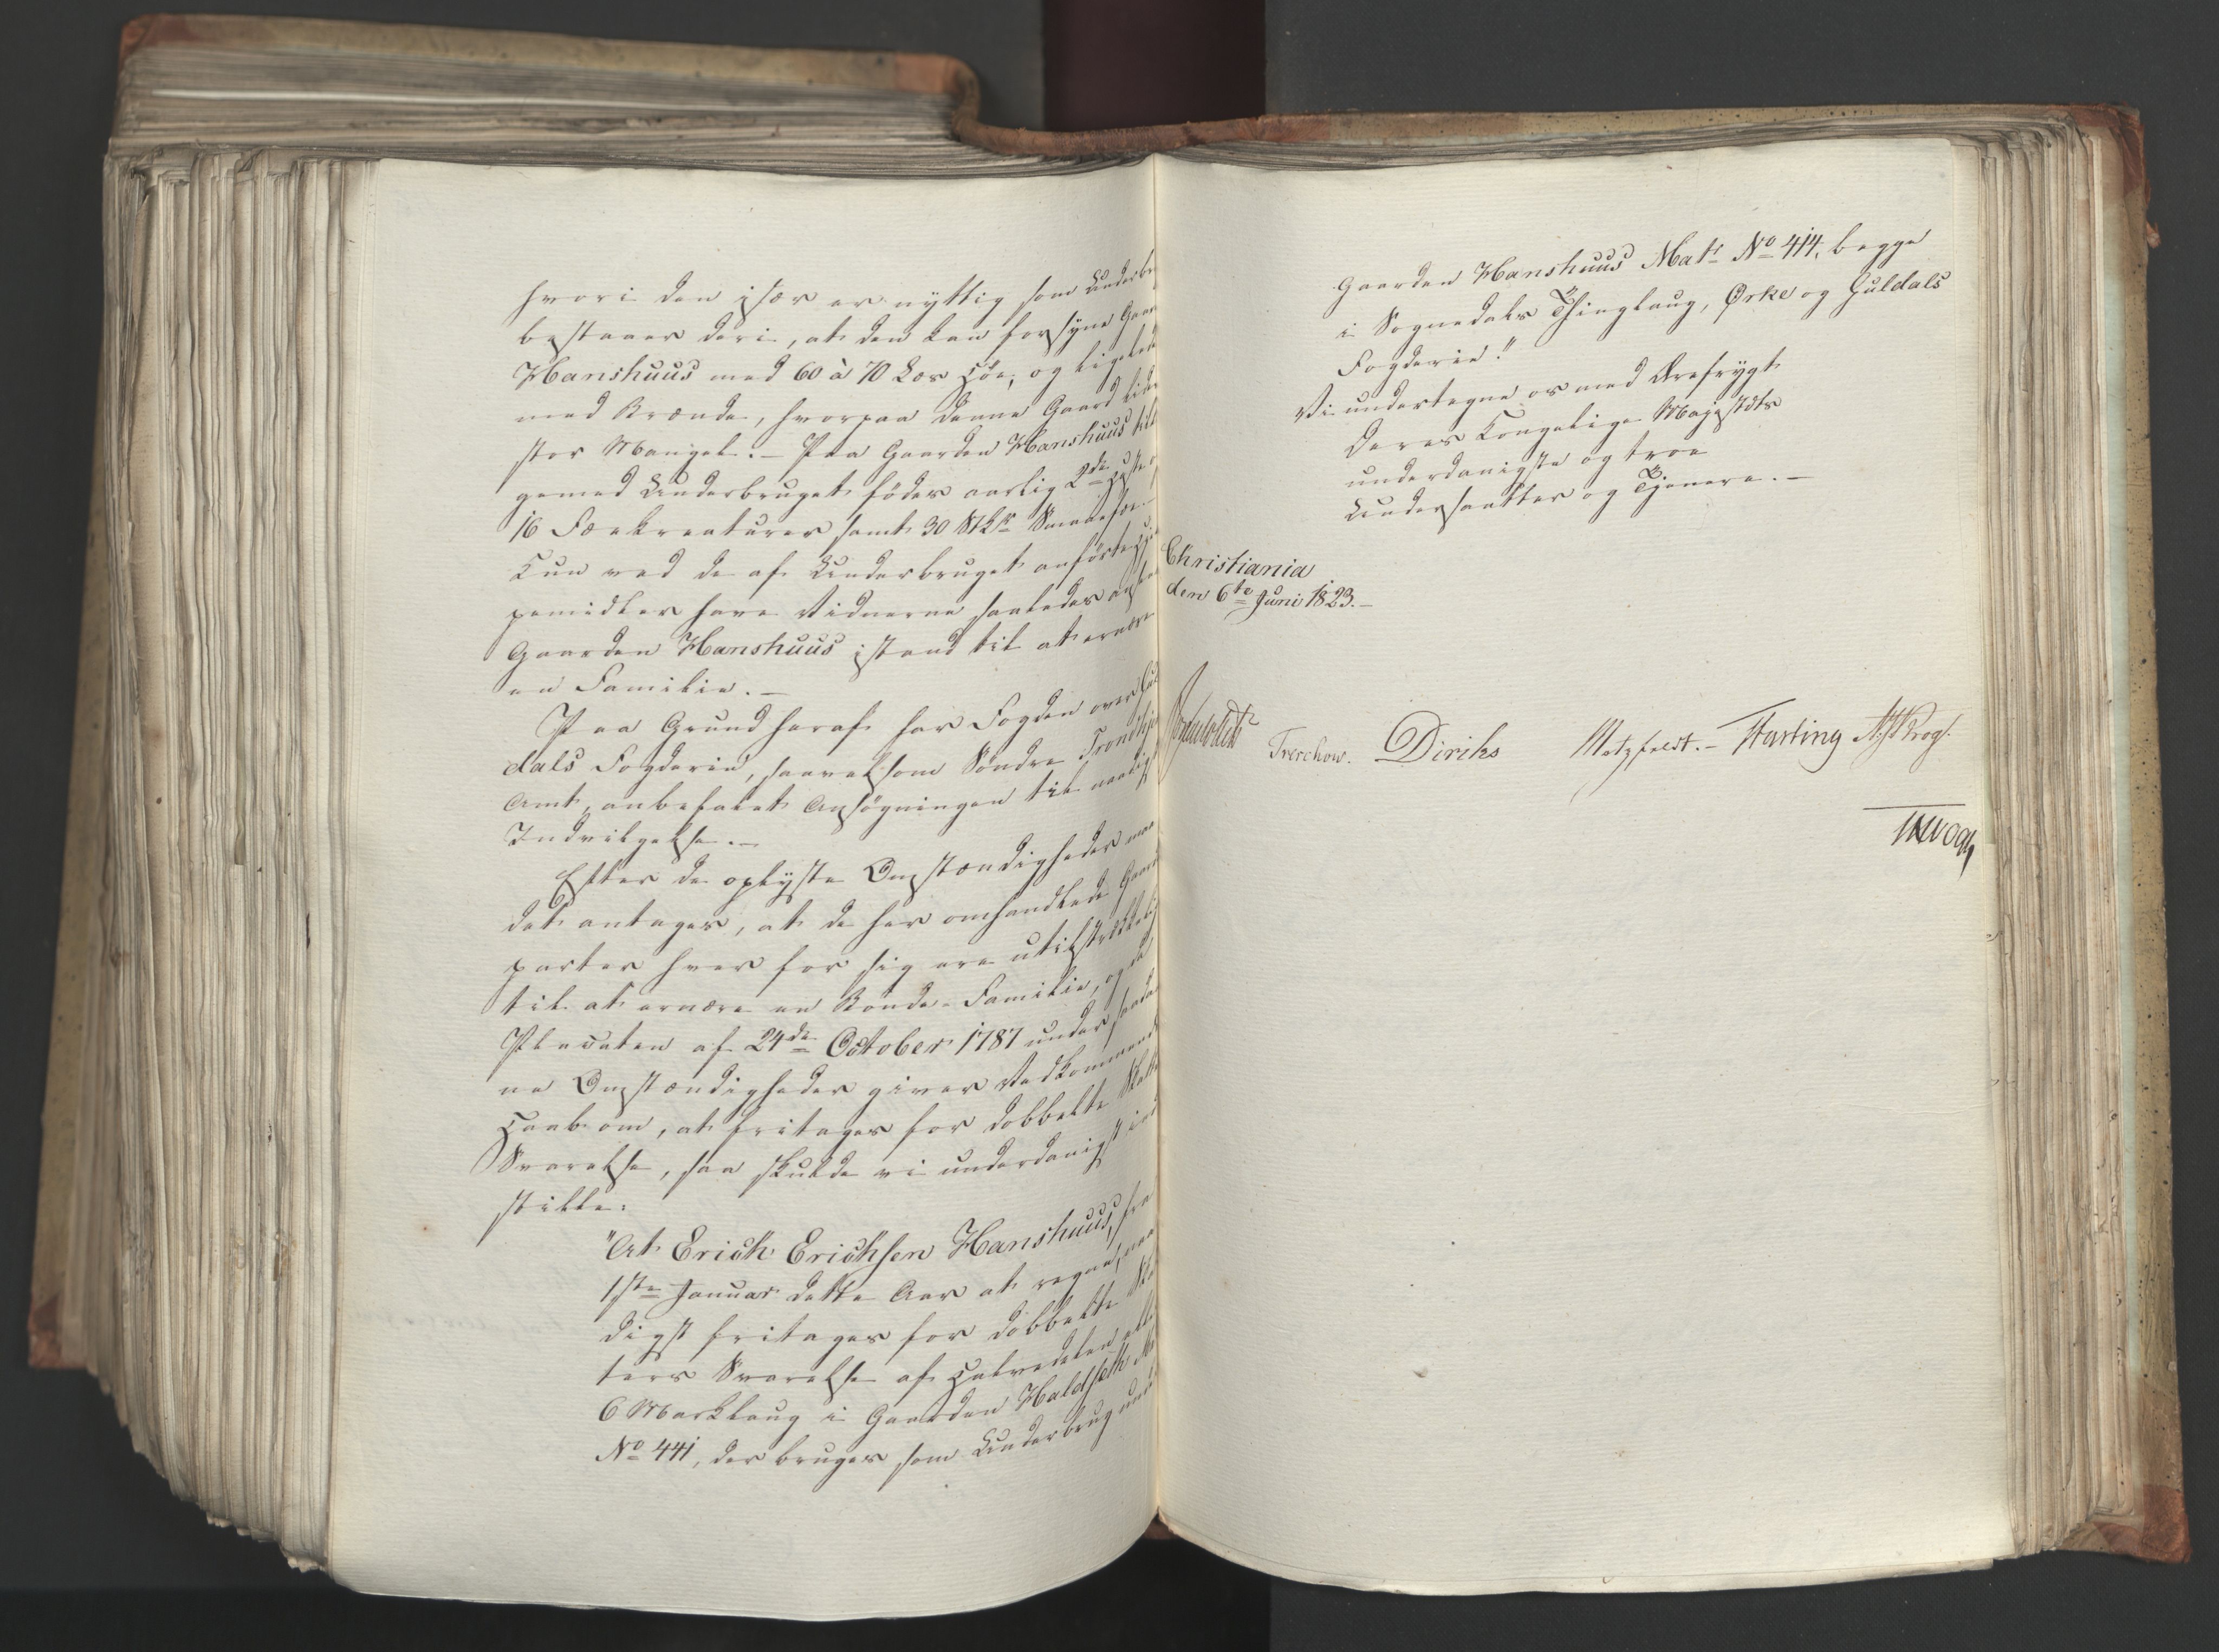 hvori den især er nyttig som Underbr
bestaaer deri, at den kan forsyne Gaar
Hanshuus med 60 à 70 Læs Høe, og ligeled
med Brænde, hvorpaa denne Gaard lider
stor Mangel. – Paa Gaarden Hanshuus till
gemed Underbruget fødes aarlig 2de Heste og
16 Fækreaturer samt 30 Stkr Smaafæe. –
Kun ved de af Underbruget anførte Hjel
pemidler have Vidnerne saaledes anseet
Gaarden Hanshuus istand til at ernære
en Familie. –
Paa Grund heraf har Fogden over Gul
dals Fogderie, saavelsom Søndre Trondhje
Amt, anbefalet Ansøgningen til naadigst
Indvilgelse. –
Efter de oplyste Omstændigheder maa
det antages, at de her omhandlede Gaard
parter hver for sig ere utilstrækkelig
til at ernære en Bonde-Familie, og da
Placaten af 24de October 1787 under saada
ne Omstændigheder giver Vedkommende
Haab om, at fritages for dobbelte Skatte
Svarelse, saa skulde vi underdanigst ind
stille:
"At Erich Erichsen Hanshuus, fra
1ste Januar dette Aar at regne, naa
digst fritages for dobbelte Ska
ters Svarelse af Halvedelen eller
6 Marklaug i Gaarden Haldseth Ma
No 441, der bruges som Underbrug unde
Gaarden Hanshuus Matr No 414, begge
i Sognedals Thinglaug, Ørke og Guldals
Fogderie."
Vi undertegne os med Ærefrygt
Deres Kongelige Majestæts
underdanigste og troe
Undersaatter og Tjenere. –
Christiania
den 6te Juni 1823. –
Treschow. Diriks Motzfeldt. – Hasting